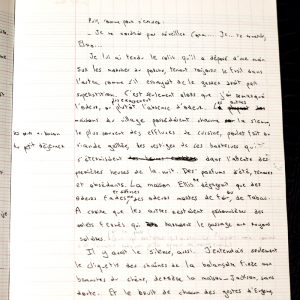 Puis, comme pour s'excuser :
— Je ne voudrais pas réveiller Cora... Je... te remercie,
Je lui ai tendu le colis qu'il a déposé d'une main
sur les marches du porche, tenant toujours le fusil dans
l'autre, comme s'il essayait de le garder droit par
superstition. C'est seulement alors que j'ai remarqué
l'odeur, ou plutôt l'absence d'odeur. les autres
maisons du village possédaient chacune la sienne,
le plus souvent des effluves de cuisine, poulet frit ou
viande grillée, des vestiges de ces
s'éternisaient dans l'attente des
premières heures de la nuit. Des parfums d'été, tenaces
et obsédants. La maison Ellis ne dégageait que des
odeurs fades, des odeurs mortes de , de tabac.
À croire que les autres restaient prisonnières des
volets fermés qui le passage aux rayons
solaires.
Il y avait le silence, aussi. J'entendais seulement
le cliquetis des chaînes de la balançoire fixée aux
branches du chêne, derrière la maison Jackson, sans
doute. Et le bruit de chacun des gestes d'Eugene,
petit déjeuner